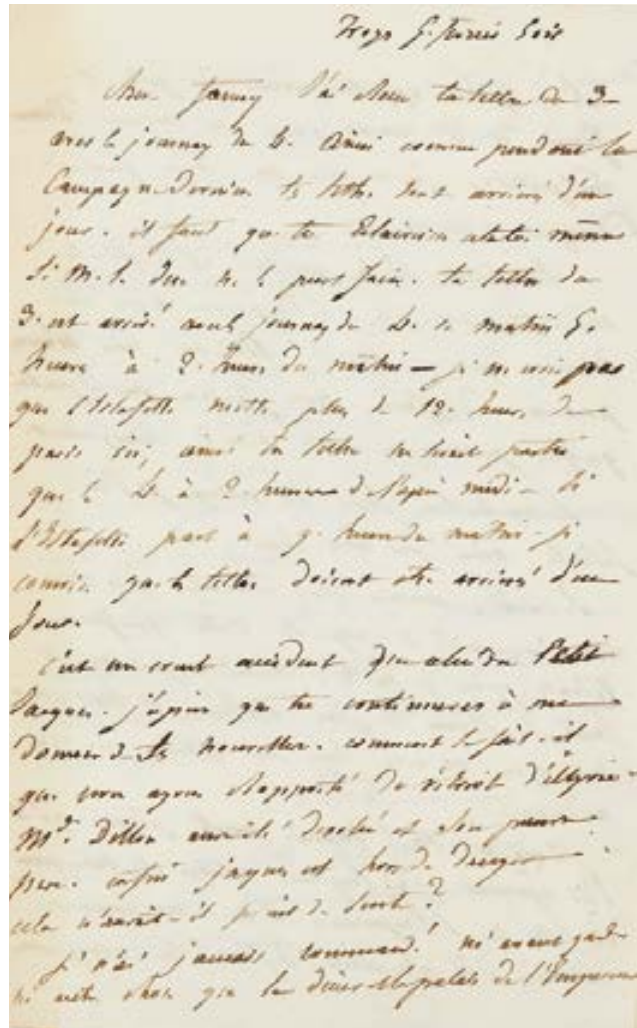 Troyes 5. fevrier soir
chere fanny J'ai Recu ta lettre du 3-
avec le journay du 4. Ainsi comme pendant la
Campagne Derniere tes lettres sont arriere d'un
jour. il faut que tu
Si M. le Duc ne le peut faire. ta lettre du
3. est arrivé avec le journay du 4. ce matin 5.
fevrier à 2. heures du matin — je ne crois pas
que l'Estafette mette plus de 12. heures de
paris ici, ainsi ta lettre ne serait partie
que le 4. à 2. heures d l'après midi — Si
l'Estafette part à 9. heures du matin je
que tes lettres doivent etre arrieré d'un
jour.
c'est un cruel accident que celui du Petit
Jacques. j'espere que tu continueras à me
donner de ses nouvelles. comment se fait-il
que vous ayez rapporté de d'illyrie
Md. Dillon aura été desolé et son
pere. enfin jaques est hors de danger
cela n'aurait-il de suite?
je n'ai jamais commandé ni avant garde
ni autre chose que le palais de l'Empereur